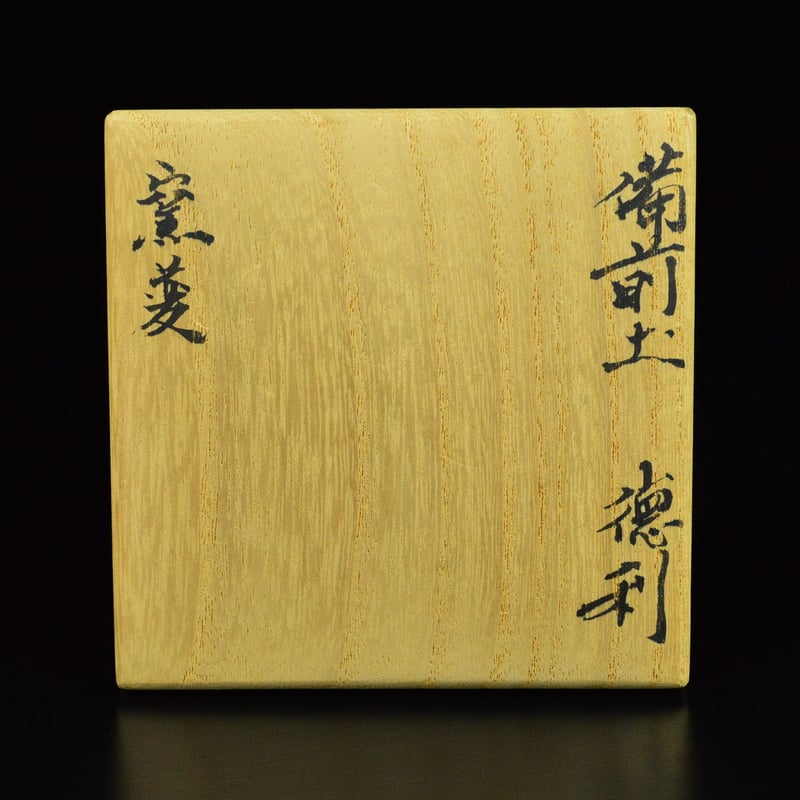 備前土 徳利
窯菱